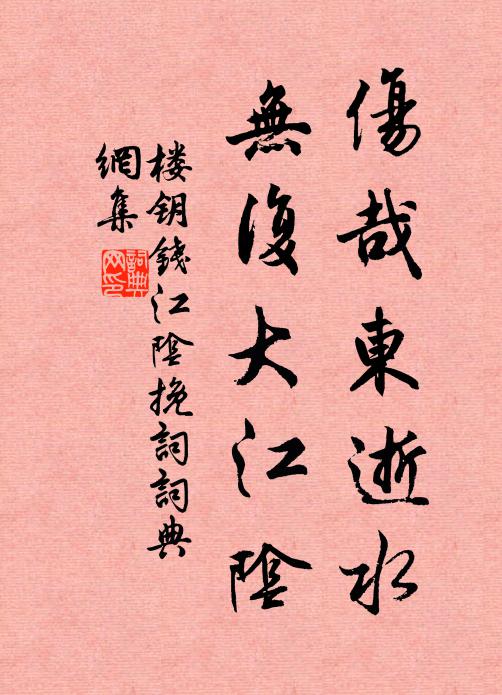 傷哉東逝水
無復大江陰
楼钥錢江陰挽詞詞典
網集
詞典
网印